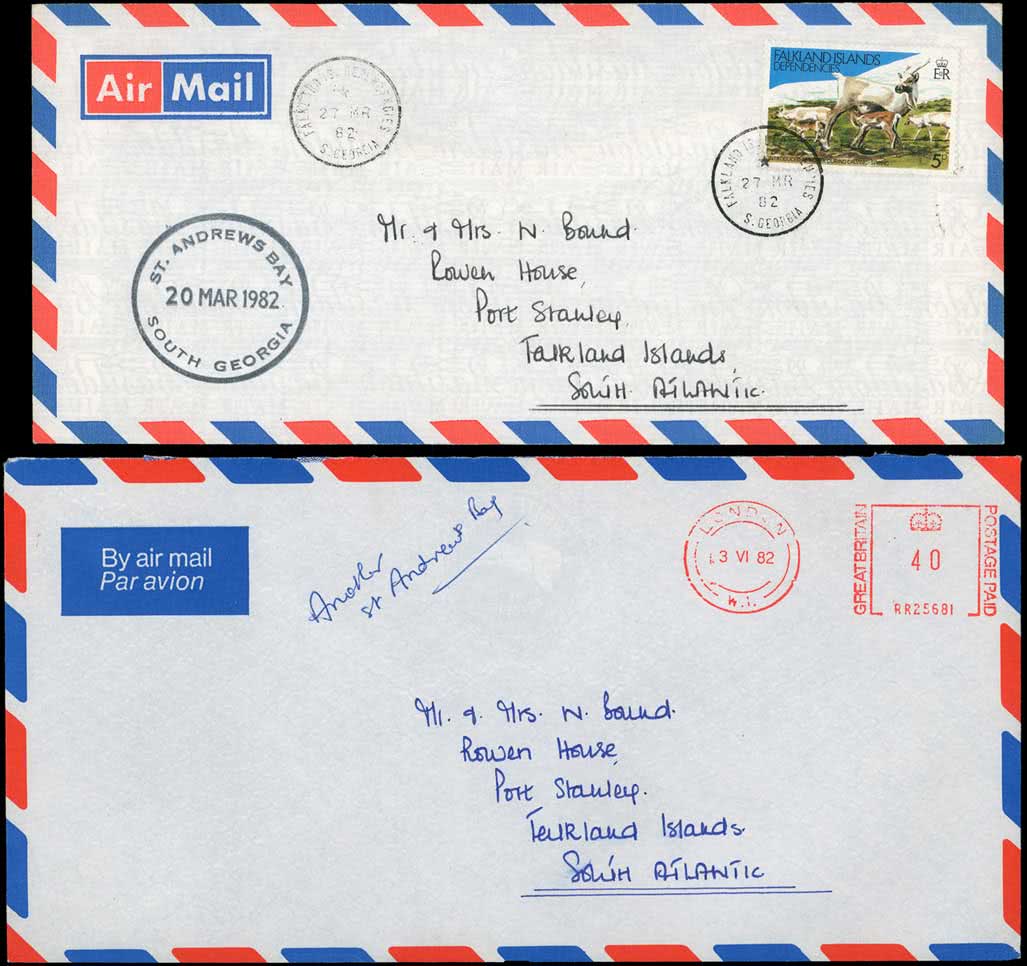 Air Mail
FALKLAND IS. DEPENDENCIES
27 MR
82
S. GEORGIA
FALKLAND ISLANDS
DEPENDENCIES
E R
5p
FALKLAND IS. DEPENDENCIES
27 MR
82
S. GEORGIA
ST. ANDREWS BAY
20 MAR 1982
SOUTH GEORGIA
Mr. & Mrs. N. Bound.
Rowen House,
Port Stanley,
Falkland Islands,
SOUTH ATLANTIC.
By air mail
Par avion
Another
St Andrews Bay
LONDON
3 VI 82
W.1.
GREAT BRITAIN
40
RR25681
POSTAGE PAID
Mr. & Mrs. N. Bound.
Rowen House,
Port Stanley.
Falkland Islands.
SOUTH ATLANTIC